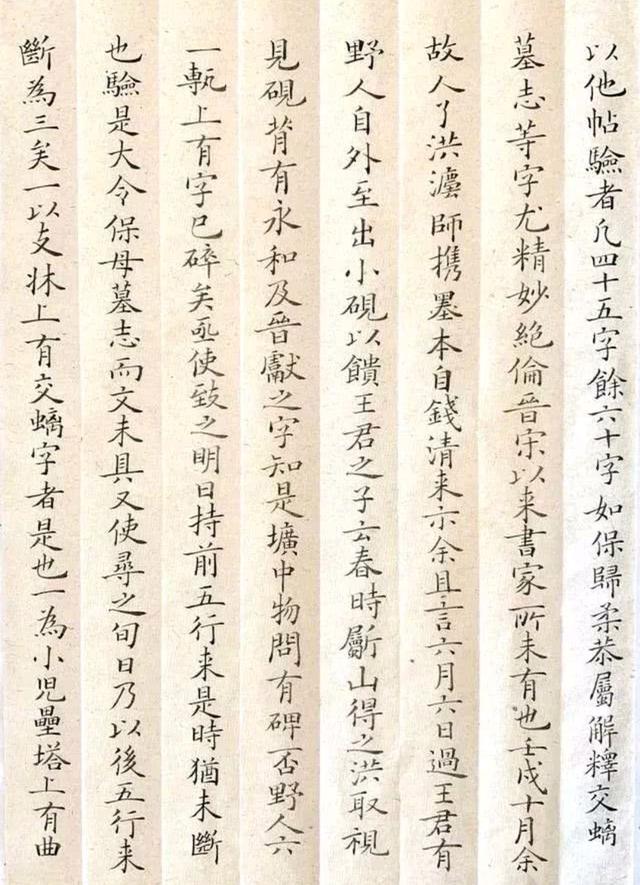 以他帖驗者凡四十五字餘六十字如保歸柔恭屬解釋交螭
墓志等字尤精妙絕倫晉宋以来書家所未有也壬戌十月余
故人了洪灋師攜墨本自錢清来示余且言六月六日過王君有
野人自外至出小硯以饋王君之子云春時斸山得之洪取視
見硯背有永和及晉獻之字知是壙中物問有碑否野人六
一甎上有字已碎矣亟使致之明日持前五行来是時猶未斷
也驗是大令保母墓志而文未具又使尋之旬日乃以後五行来
斷為三矣一以支牀上有交螭字者是也一為小児壘塔上有曲